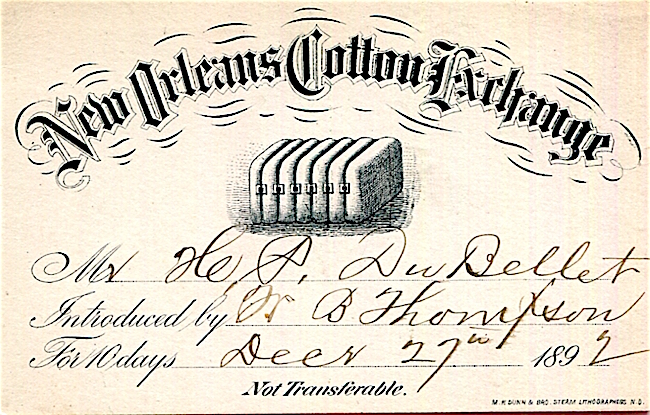 New Orleans Cotton Exchange
Mr H. P. Du Bellet
Introduced by W B Thompson
For 10 days Decr 27th 1892
Not Transferable.
M. F. DUNN & BRO. STEAM LITHOGRAPHERS N.O.